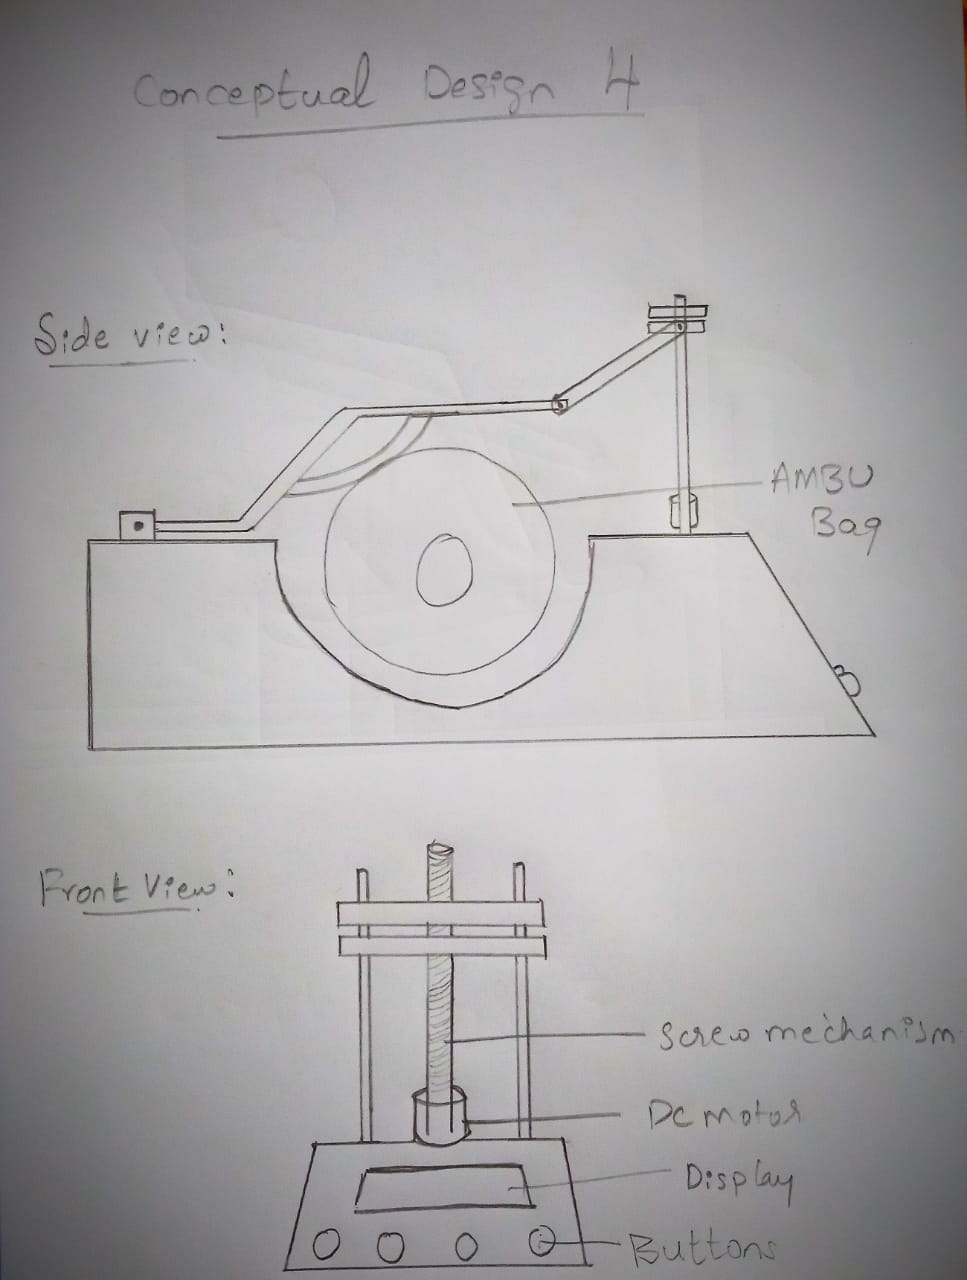 Conceptual Design 4
Side view:
AMBU
Bag
Front View:
Screw mechanism
DC motor
Display
Buttons